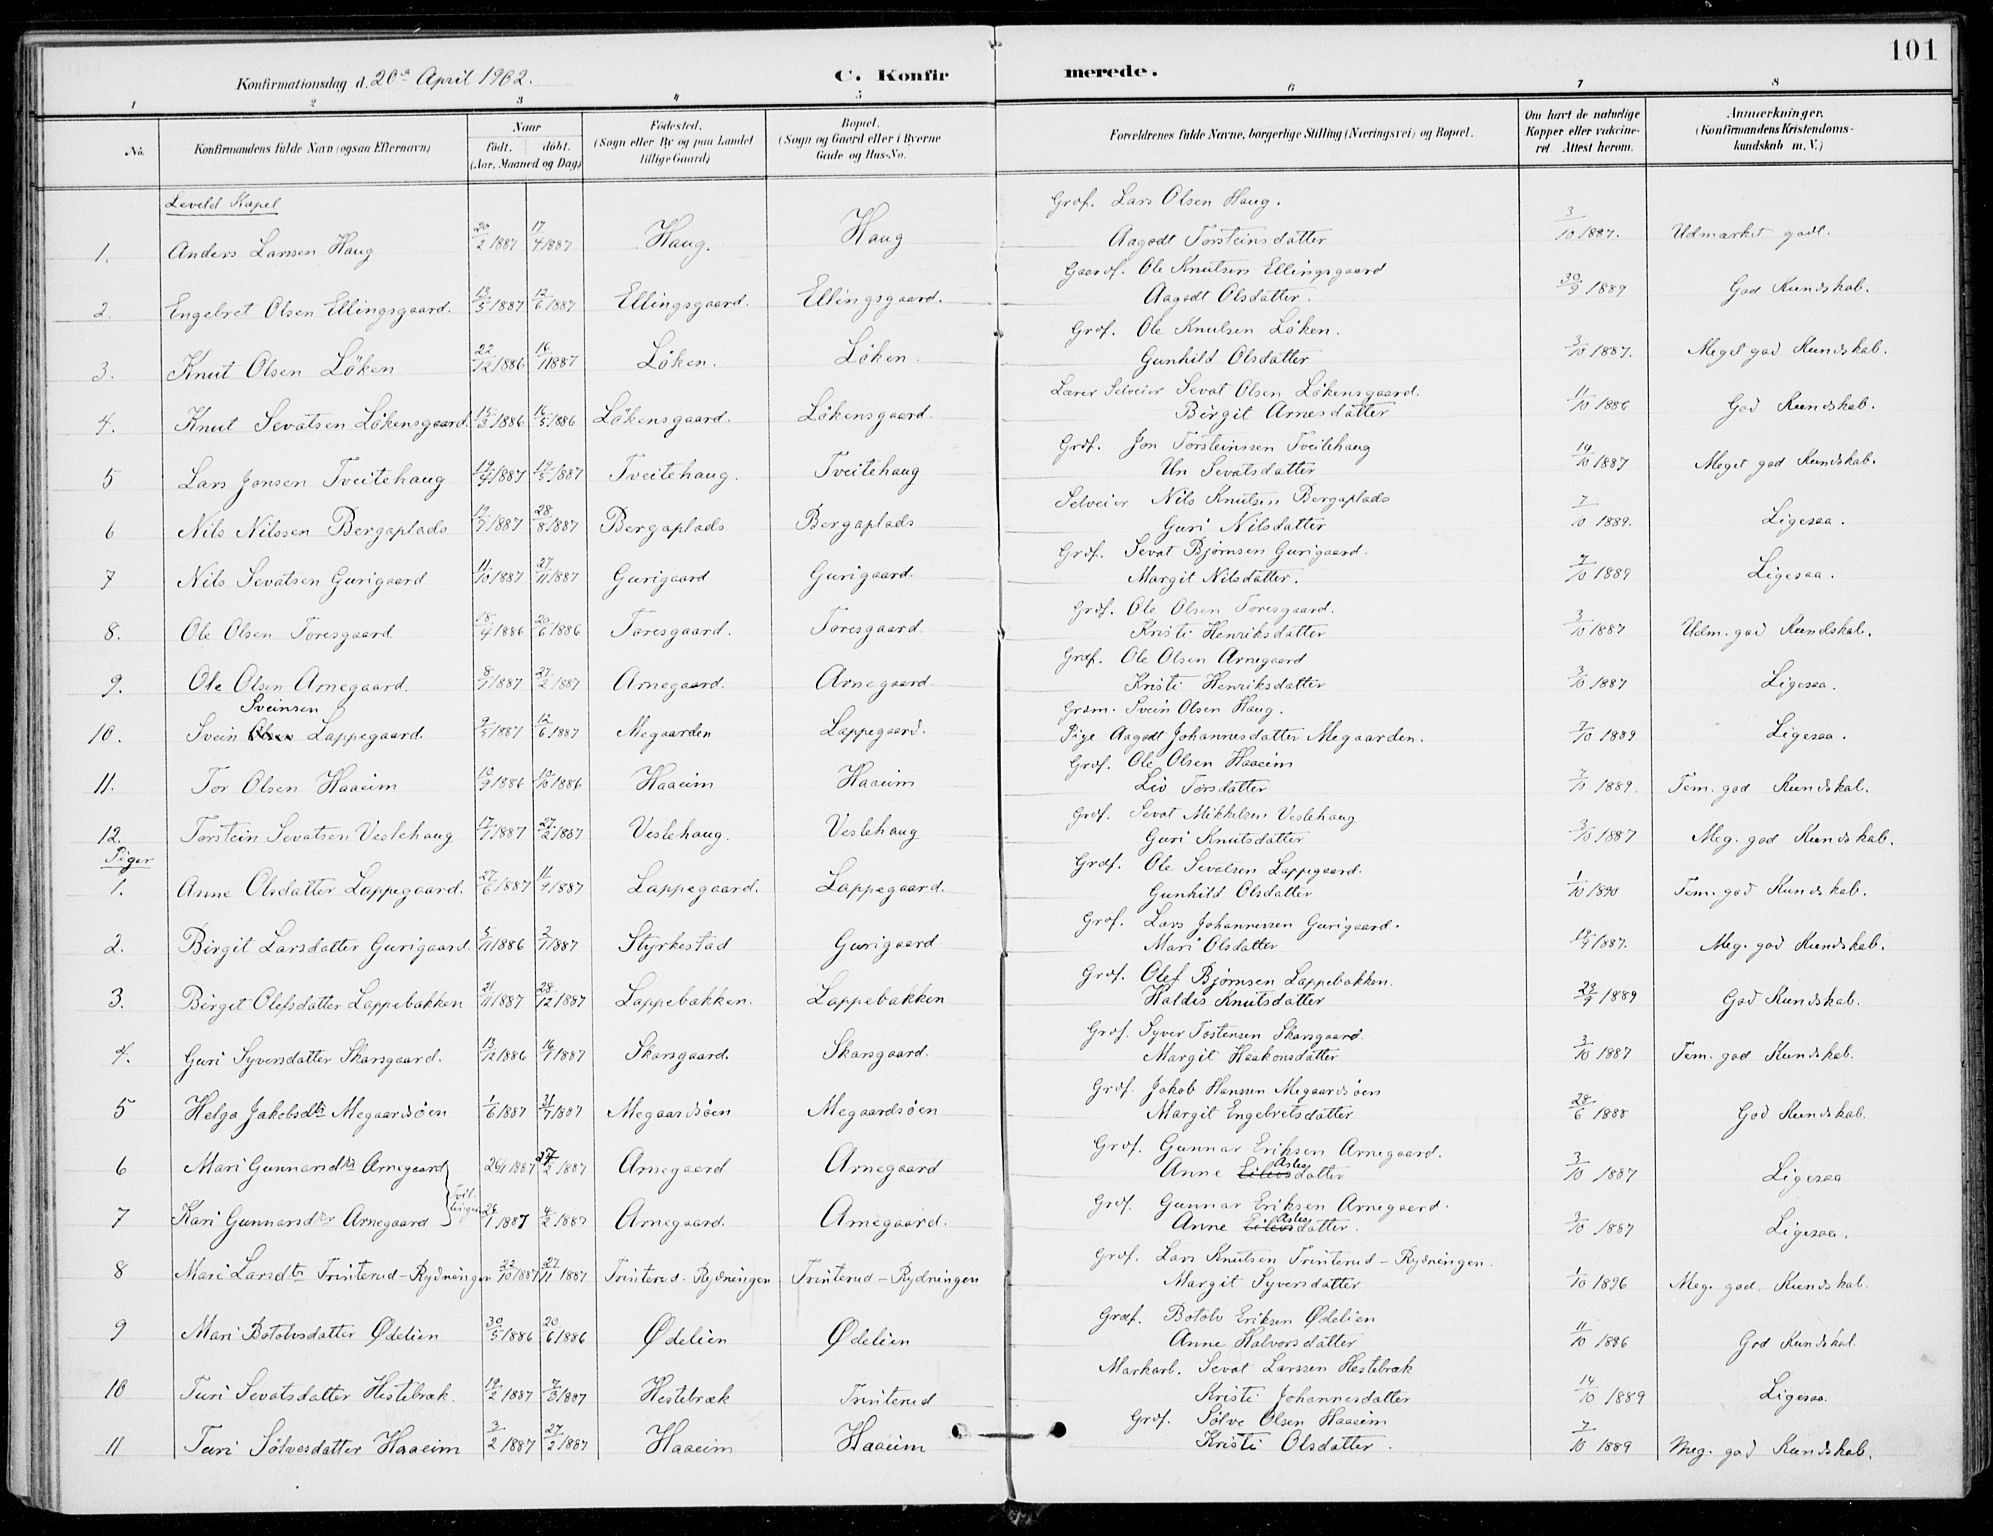 101
Konfirmationsdag d. 20de April 1902.
C. Konfirmerede.
1 2 3 4 5 6 7 8
No.
Konfirmandens fulde Navn (ogsaa Efternavn)
Naar
født. døbt.
(Aar, Maaned og Dag)
Fødested.
(Sogn eller By og paa Landet
tillige Gaard)
Bopæl.
(Sogn og Gaard eller i Byerne
Gade og Hus-No.
Forældrenes fulde Navne, borgerlige Stilling (Næringsvei) og Bopæl.
Om havt de naturlige
Kopper eller vakcine-
ret. Attest herom.
Anmærkninger.
(Konfirmandens Kristendoms-
kundskab m. V.)
Leveld Kapel
1. Anders Larssen Haug 20/2 1887 17/4 1887 Haug. Haug Grdf. Lars Olsen Haug. 3/10 1887. Udmærket godt.
Aagodt Torsteinsdatter
2. Engebret Olsen Ellingsgaard. 13/5 1887 12/6 1887 Ellingsgaard. Ellingsgaard. Gaardf. Ole Knutsen Ellingsgaard 30/9 1889 God Kundskab.
Aagodt Olsdatter.
3. Knut Olsen Löken 22/12 1886 16/1 1887 Löken. Löken. Grdf. Ole Knutsen Löken. 3/10 1887. Meget god Kundskab.
Gunhild Olsdatter
4. Knut Sevatsen Lökensgaard 15/3 1886 16/5 1886 Lökensgaard. Lökensgaard. Lærer Selveier Sevat Olsen Lökensgaard. 11/10 1886 God Kundskab.
Birgit Arnesdatter
5 Lars Jonsen Tveitehaug 19/4 1887 19/5 1887 Tveitehaug. Tveitehaug Grdf. Jon Torsteinssen Tveitehaug 14/10 1887 Meget god Kundskab.
Un Sevatsdatter
6 Nils Nilssen Bergaplads 19/7 1887 28/8 1887 Bergaplads Bergaplads Selveier Nils Knutsen Bergaplads 7/10 1889. Ligesaa.
Guri Nilsdatter
7 Nils Sevatsen Gurigaard 11/10 1887 27/11 1887 Gurigaard Gurigaard. Grdf. Sevat Bjørnsen Gurigaard. 7/10 1889 Ligesaa.
Margit Nilsdatter.
8. Ole Olsen Toresgaard. 18/4 1886 20/6 1886 Toresgaard. Toresgaard. Grdf. Ole Olsen Toresgaard. 3/10 1887 Udm. god Kundskab.
Kristi Henriksdatter
9. Ole Olsen Arnegaard. 8/1 1887 27/2 1887 Arnegaard. Arnegaard Grdf. Ole Olsen Arnegaard 3/10 1887 Ligesaa.
Kristi Henriksdatter
Sveinsen
10. Svein Olsen Lappegaard. 9/5 1887 12/6 1887 Megaarden Lappegaard. Grdm. Svein Olsen Haug. 7/10 1889 Ligesaa.
Pige Aagodt Johannesdatter Megaarden.
11. Tor Olsen Haaeim 10/9 1886 10/10 1886 Haaeim Haaeim Grdf. Ole Olsen Haaeim 7/10 1889. Tem. god Kundskab.
Liv Torsdatter
12. Torstein Sevatsen Veslehaug 17/1 1887 27/2 1887 Veslehaug. Veslehaug Grdf. Sevat Mikkelsen Veslehaug 3/10 1887 Meg. god Kundskab.
Guri Knutsdatter
Piger
1. Anne Olsdatter Lappegaard. 27/6 1887 11/9 1887 Lappegaard. Lappegaard. Grdf. Ole Sevatsen Lappegaard. 1/10 1890 Tem. god Kundskab.
Gunhild Olsdatter
2. Birgit Larsdatter Gurigaard. 5/11 1886 2/1 1887 Styrkestad Gurigaard. Grdf. Lars Johannessen Gurigaard. 12/9 1887. Meg. god Kundskab.
Mari Olsdatter
3. Birgit Olefsdatter Lappebakken 21/11 1887 28/12 1887 Lappebakken. Lappebakken Grdf. Olef Bjørnsen Lappebakken. 23/9 1889 God Kundskab.
Haldis Knutsdatter
4. Guri Syversdatter Skarsgaard. 13/12 1886 16/1 1887 Skarsgaard. Skarsgaard. Grdf. Syver Tostensen Skarsgaard. 3/10 1887 Tem. god Kundskab.
Margit Haakonsdatter
5 Helga Jakobsdtr Megaardsøen 1/6 1887 31/7 1887 Megaardsøen Megaardsøen Grdf. Jakob Hanssen Megaardsøen 28/6 1888 God Kundskab.
Margit Engebretsdatter
6 Mari Gunnarsdtr Arnegaard 26/1 1887 27/2 1887 Arnegaard Arnegaard Grdf. Gunnar Eriksen Arnegaard. 3/10 1887 Ligesaa
Anne Eilevsdatter Asles
Tvillinger
7 Kari Gunnarsdtr Arnegaard 26/1 1887 4/2 1887 Arnegaard. Arnegaard. Grdf. Gunnar Eriksen Arnegaard. 3/10 1887 Ligesaa.
Anne Eilevsdatter. Asles
8 Mari Larsdtr Trinterud-Rydningen 22/10 1887 27/11 1887 Trinterud-Rydningen Trinterud-Rydningen Grdf. Lars Knutsen Trinterud-Rydningen. 1/10 1896 Meg. god Kundskab.
Margit Syversdatter
9 Mari Botolvsdatter Ødelien 30/5 1886 20/6 1886 Ødelien Ødelien Grdf. Botolv Eriksen Ødelien 11/10 1886 God Kundskab.
Anne Halvorsdatter
10 Turi Sevatsdatter Hestebræk. 19/2 1887 7/3 1887 Hestebræk Trinterud Markarb. Sevat Larssen Hestebræk 14/10 1889 Ligesaa.
Kristi Johannesdatter
11 Turi Sølvesdatter Haaeim 3/2 1887 27/2 1887 Haaeim Haaeim Grdf. Sølve Olsen Haaeim 7/10 1889 Meg. god Kundskab.
Kristi Olsdatter.